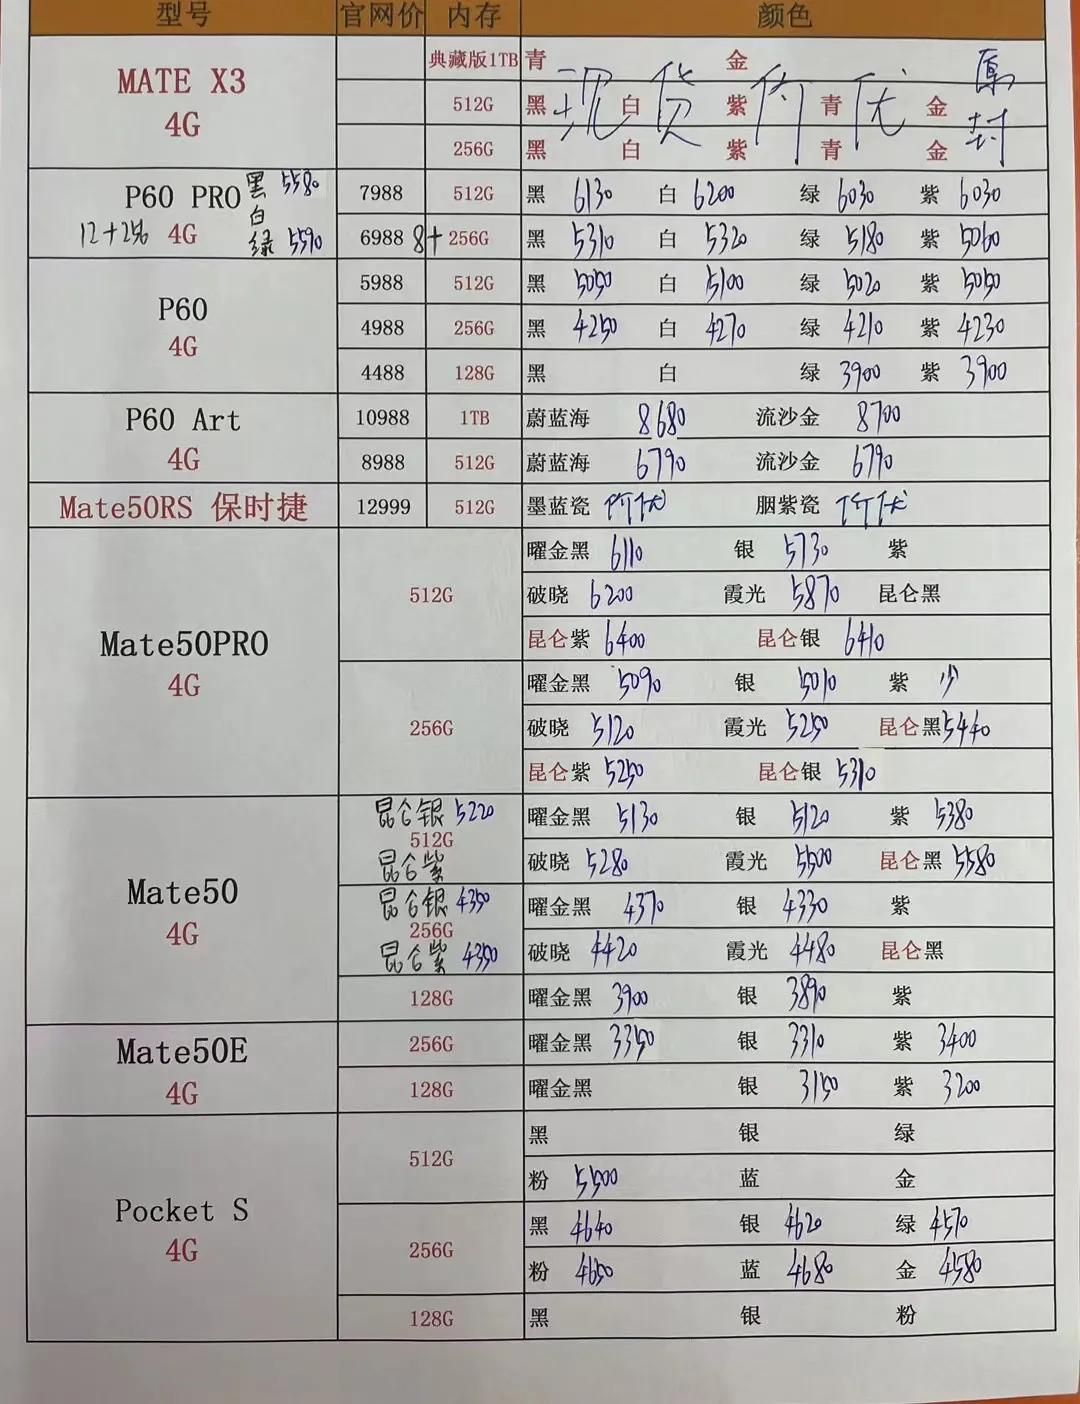 型号 官网价 内存 颜色
典藏版1TB 青 金 原
MATE X3 512G 黑 白 紫 青 金 封
4G 现货 优
256G 黑 白 紫 青 金
P60 PRO 黑 5580 7988 512G 黑 6130 白 6200 绿 6030 紫 6030
白
12+256 4G 绿 5590 6988 8+256G 黑 5310 白 5320 绿 5180 紫 5060
5988 512G 黑 5050 白 5100 绿 5020 紫 5050
P60 4988 256G 黑 4250 白 4270 绿 4210 紫 4230
4G
4488 128G 黑 白 绿 3900 紫 3900
P60 Art 10988 1TB 蔚蓝海 8680 流沙金 8700
4G 8988 512G 蔚蓝海 6790 流沙金 6790
Mate50RS 保时捷 12999 512G 墨蓝瓷 胭紫瓷
曜金黑 6110 银 5730 紫
512G 破晓 6200 霞光 5870 昆仑黑
Mate50PRO 昆仑紫 6400 昆仑银 6410
4G 曜金黑 5090 银 5010 紫 少
256G 破晓 5120 霞光 5250 昆仑黑 5440
昆仑紫 5250 昆仑银 5310
昆仑银 5220 曜金黑 5130 银 5120 紫 5380
512G
昆仑紫 破晓 5280 霞光 5500 昆仑黑 5580
Mate50 昆仑银 4350 曜金黑 4370 银 4330 紫
4G 256G
昆仑紫 4350 破晓 4420 霞光 4480 昆仑黑
128G 曜金黑 3900 银 3890 紫
Mate50E 256G 曜金黑 3350 银 3310 紫 3400
4G 128G 曜金黑 银 3150 紫 3200
黑 银 绿
512G
粉 5500 蓝 金
Pocket S 黑 4640 银 4620 绿 4570
4G 256G
粉 4650 蓝 4680 金 4580
128G 黑 银 粉